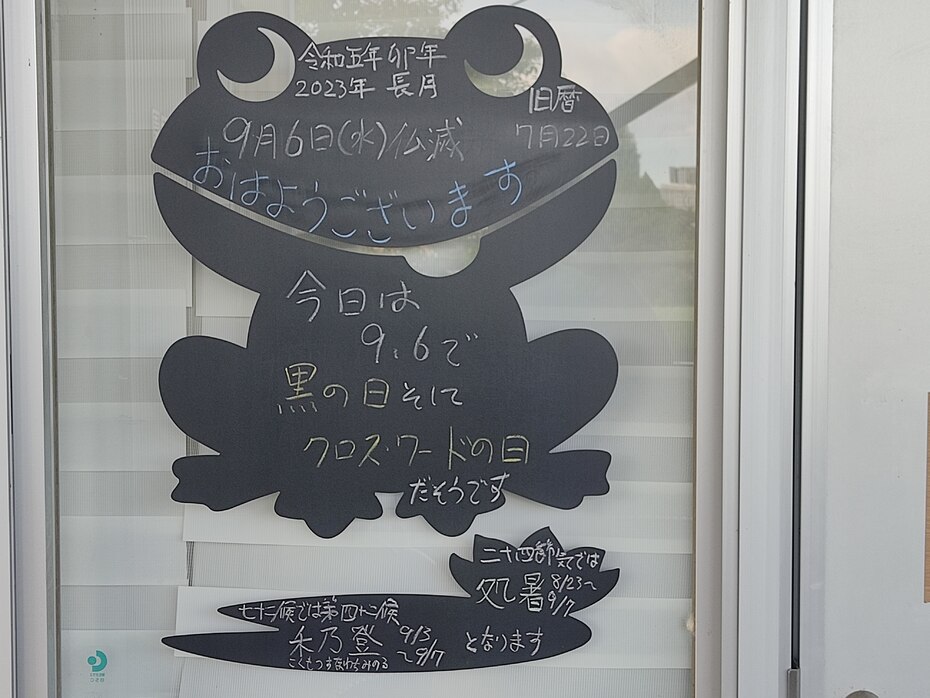 令和五年 卯年
2023年 長月
旧暦
7月22日
9月6日(水)仏滅
おはようございます
今日は
9.6で
黒の日そして
クロス・ワードの日
だそうです
二十四節気では
処暑 8/23〜
9/7
七十二候では第四十二候
禾乃登 9/3
〜9/7
となります
こくもつすなわちみのる